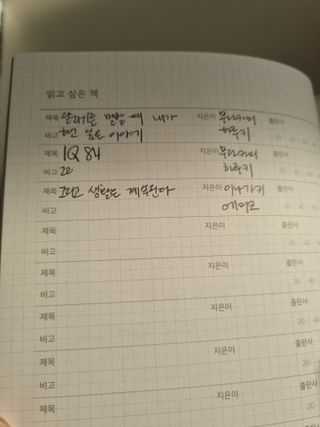 읽고 싶은 책
제목 달리기를 말할 때 내가 지은이 무라카미 출판사
비고 하고 싶은 이야기 하루키
제목 1Q84 지은이 무라카미 출판사
비고 하루키 20
제목 그리고 생활은 계속된다 지은이 이나가키 출판사
비고 에미코 20 40
제목 지은이 출판사
비고 20 40
제목 지은이 출판사
비고 20 40
제목 지은이 출판사
비고 20 40
제목 지은이 출판사
비고 20
제목 지은이 출판사
비고 20
제목 지은이 출판사